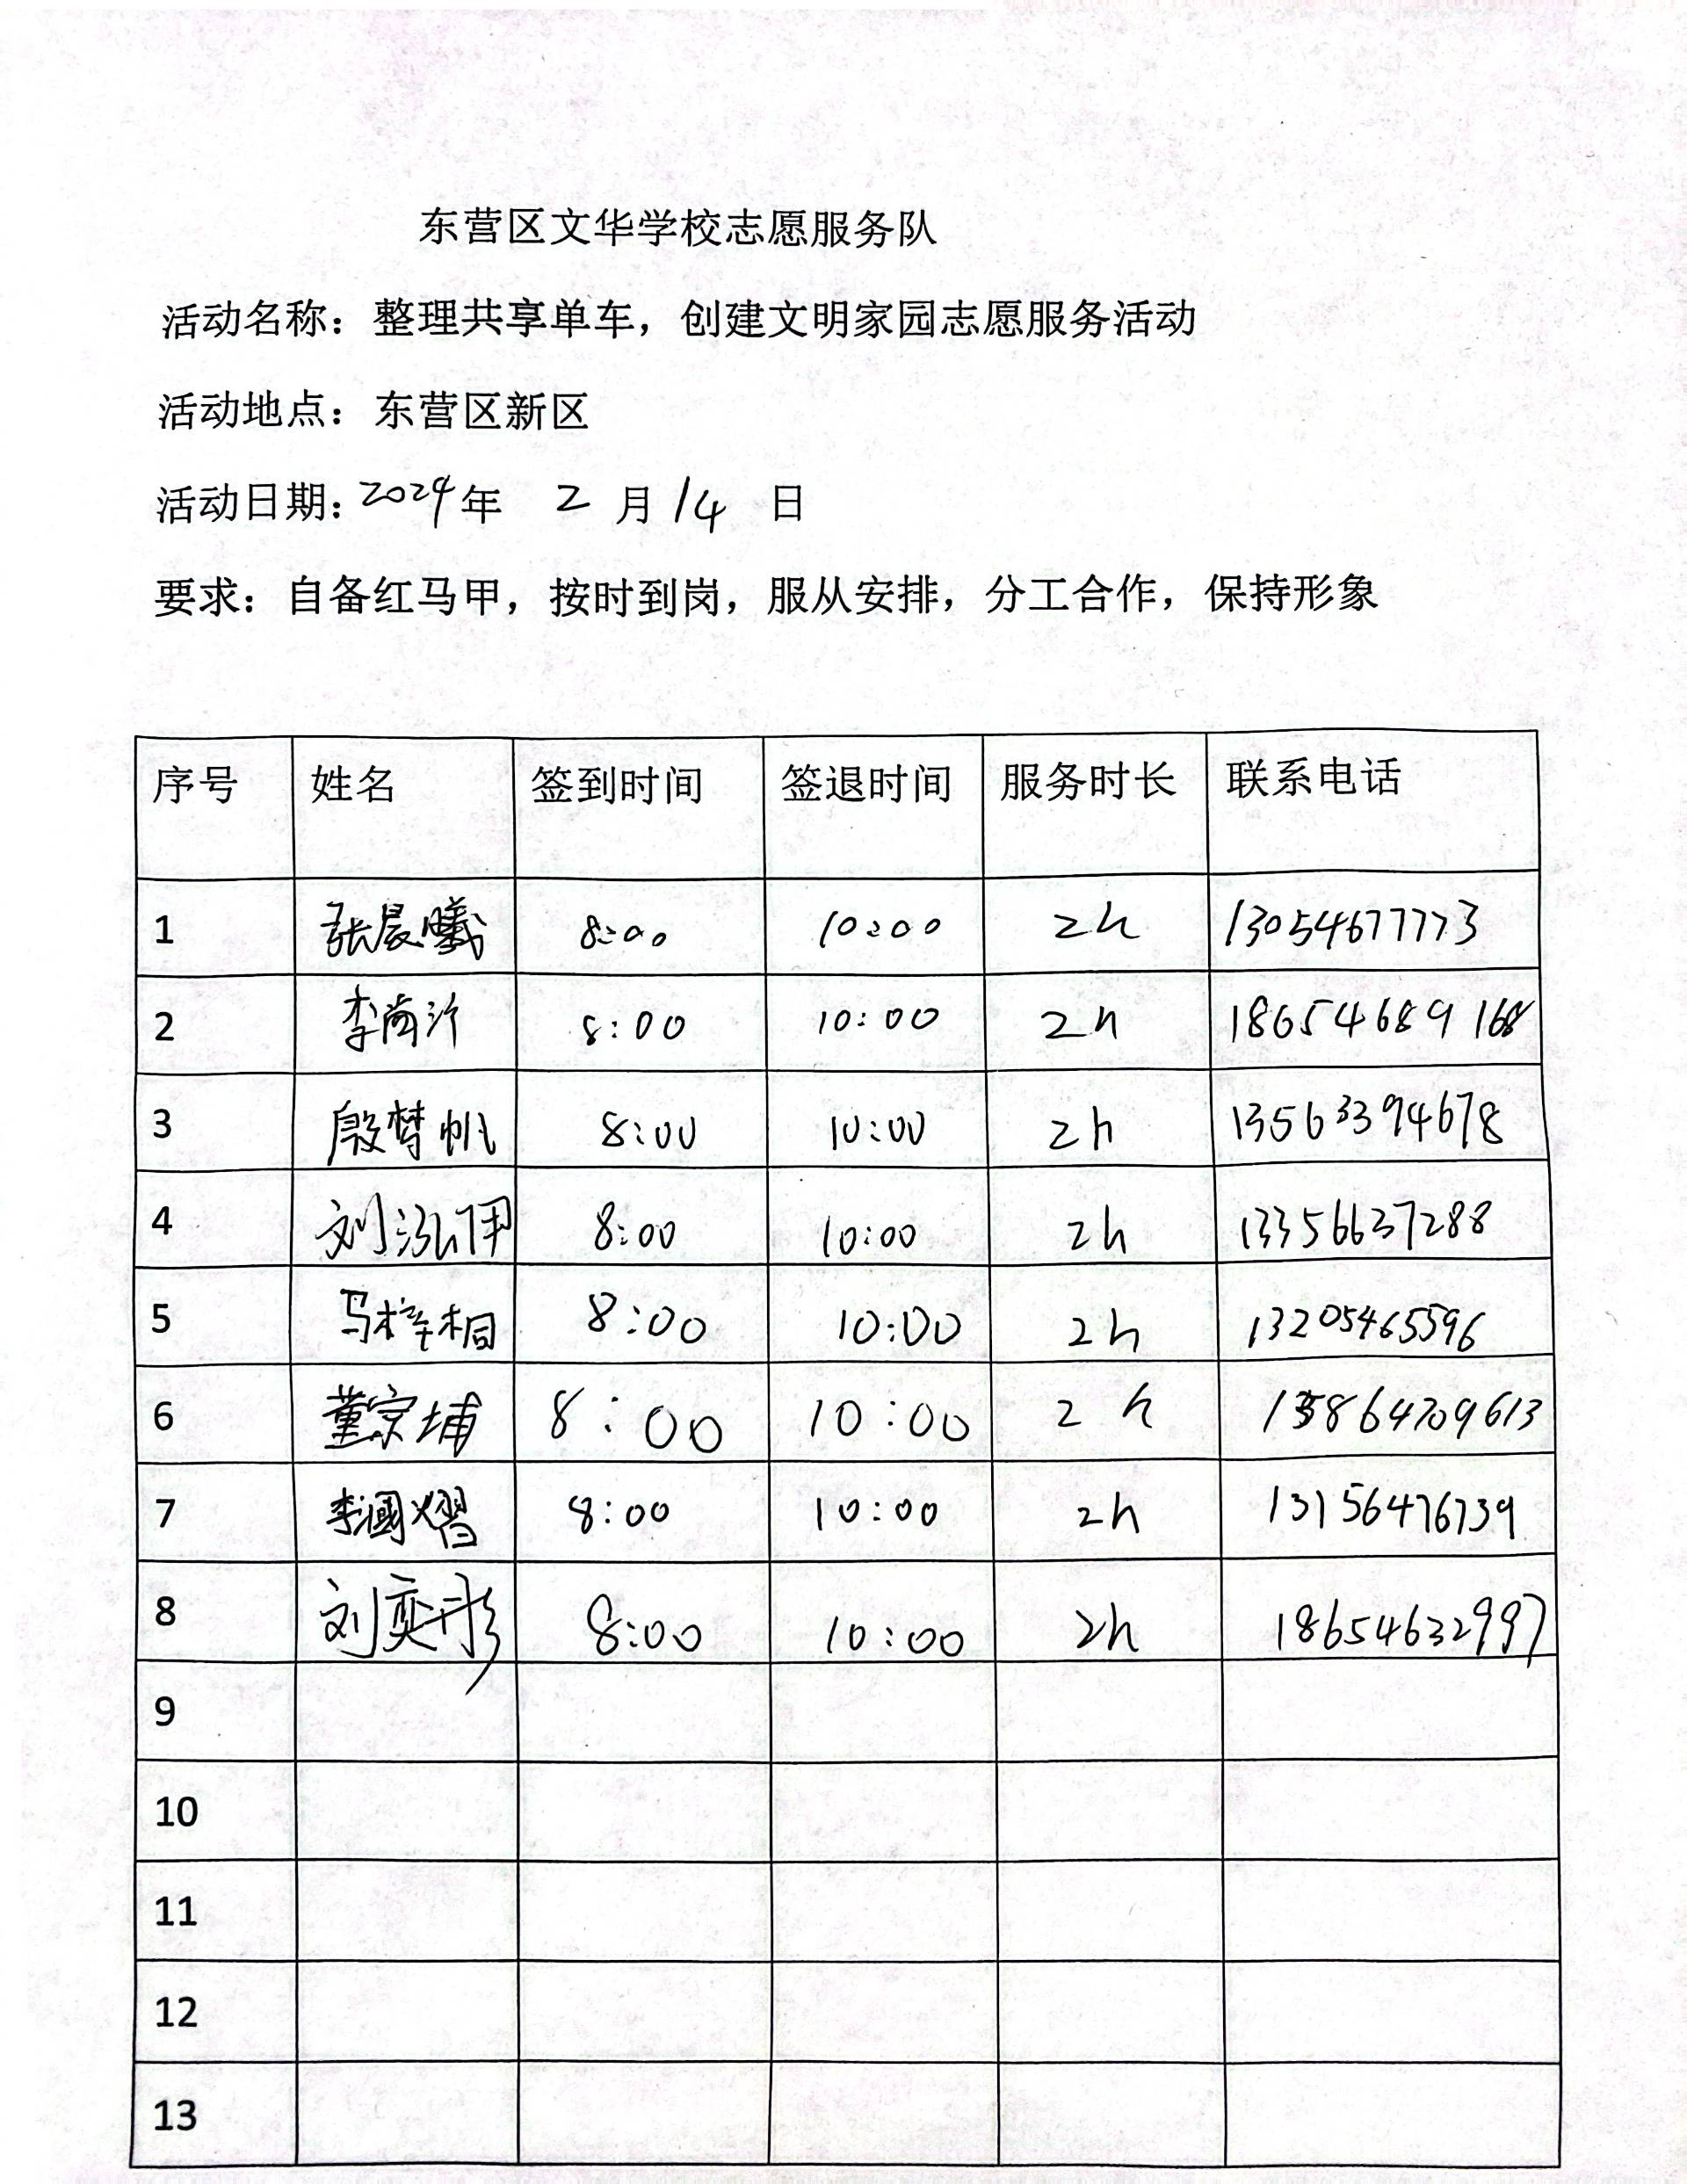 东营区文华学校志愿服务队
活动名称：整理共享单车，创建文明家园志愿服务活动
活动地点：东营区新区
活动日期：2024年 2 月 14 日
要求：自备红马甲，按时到岗，服从安排，分工合作，保持形象
序号 姓名 签到时间 签退时间 服务时长 联系电话
1 张晨曦 8:00 10:00 2h 13054677773
2 李尚沂 8:00 10:00 2h 18654689168
3 殷梦帆 8:00 10:00 2h 13563394678
4 刘泓伊 8:00 10:00 2h 13356637288
5 马梓桐 8:00 10:00 2h 13205465596
6 董宗埔 8:00 10:00 2h 13864709613
7 李国熠 8:00 10:00 2h 13156476739
8 刘奕彤 8:00 10:00 2h 18654632997
9
10
11
12
13